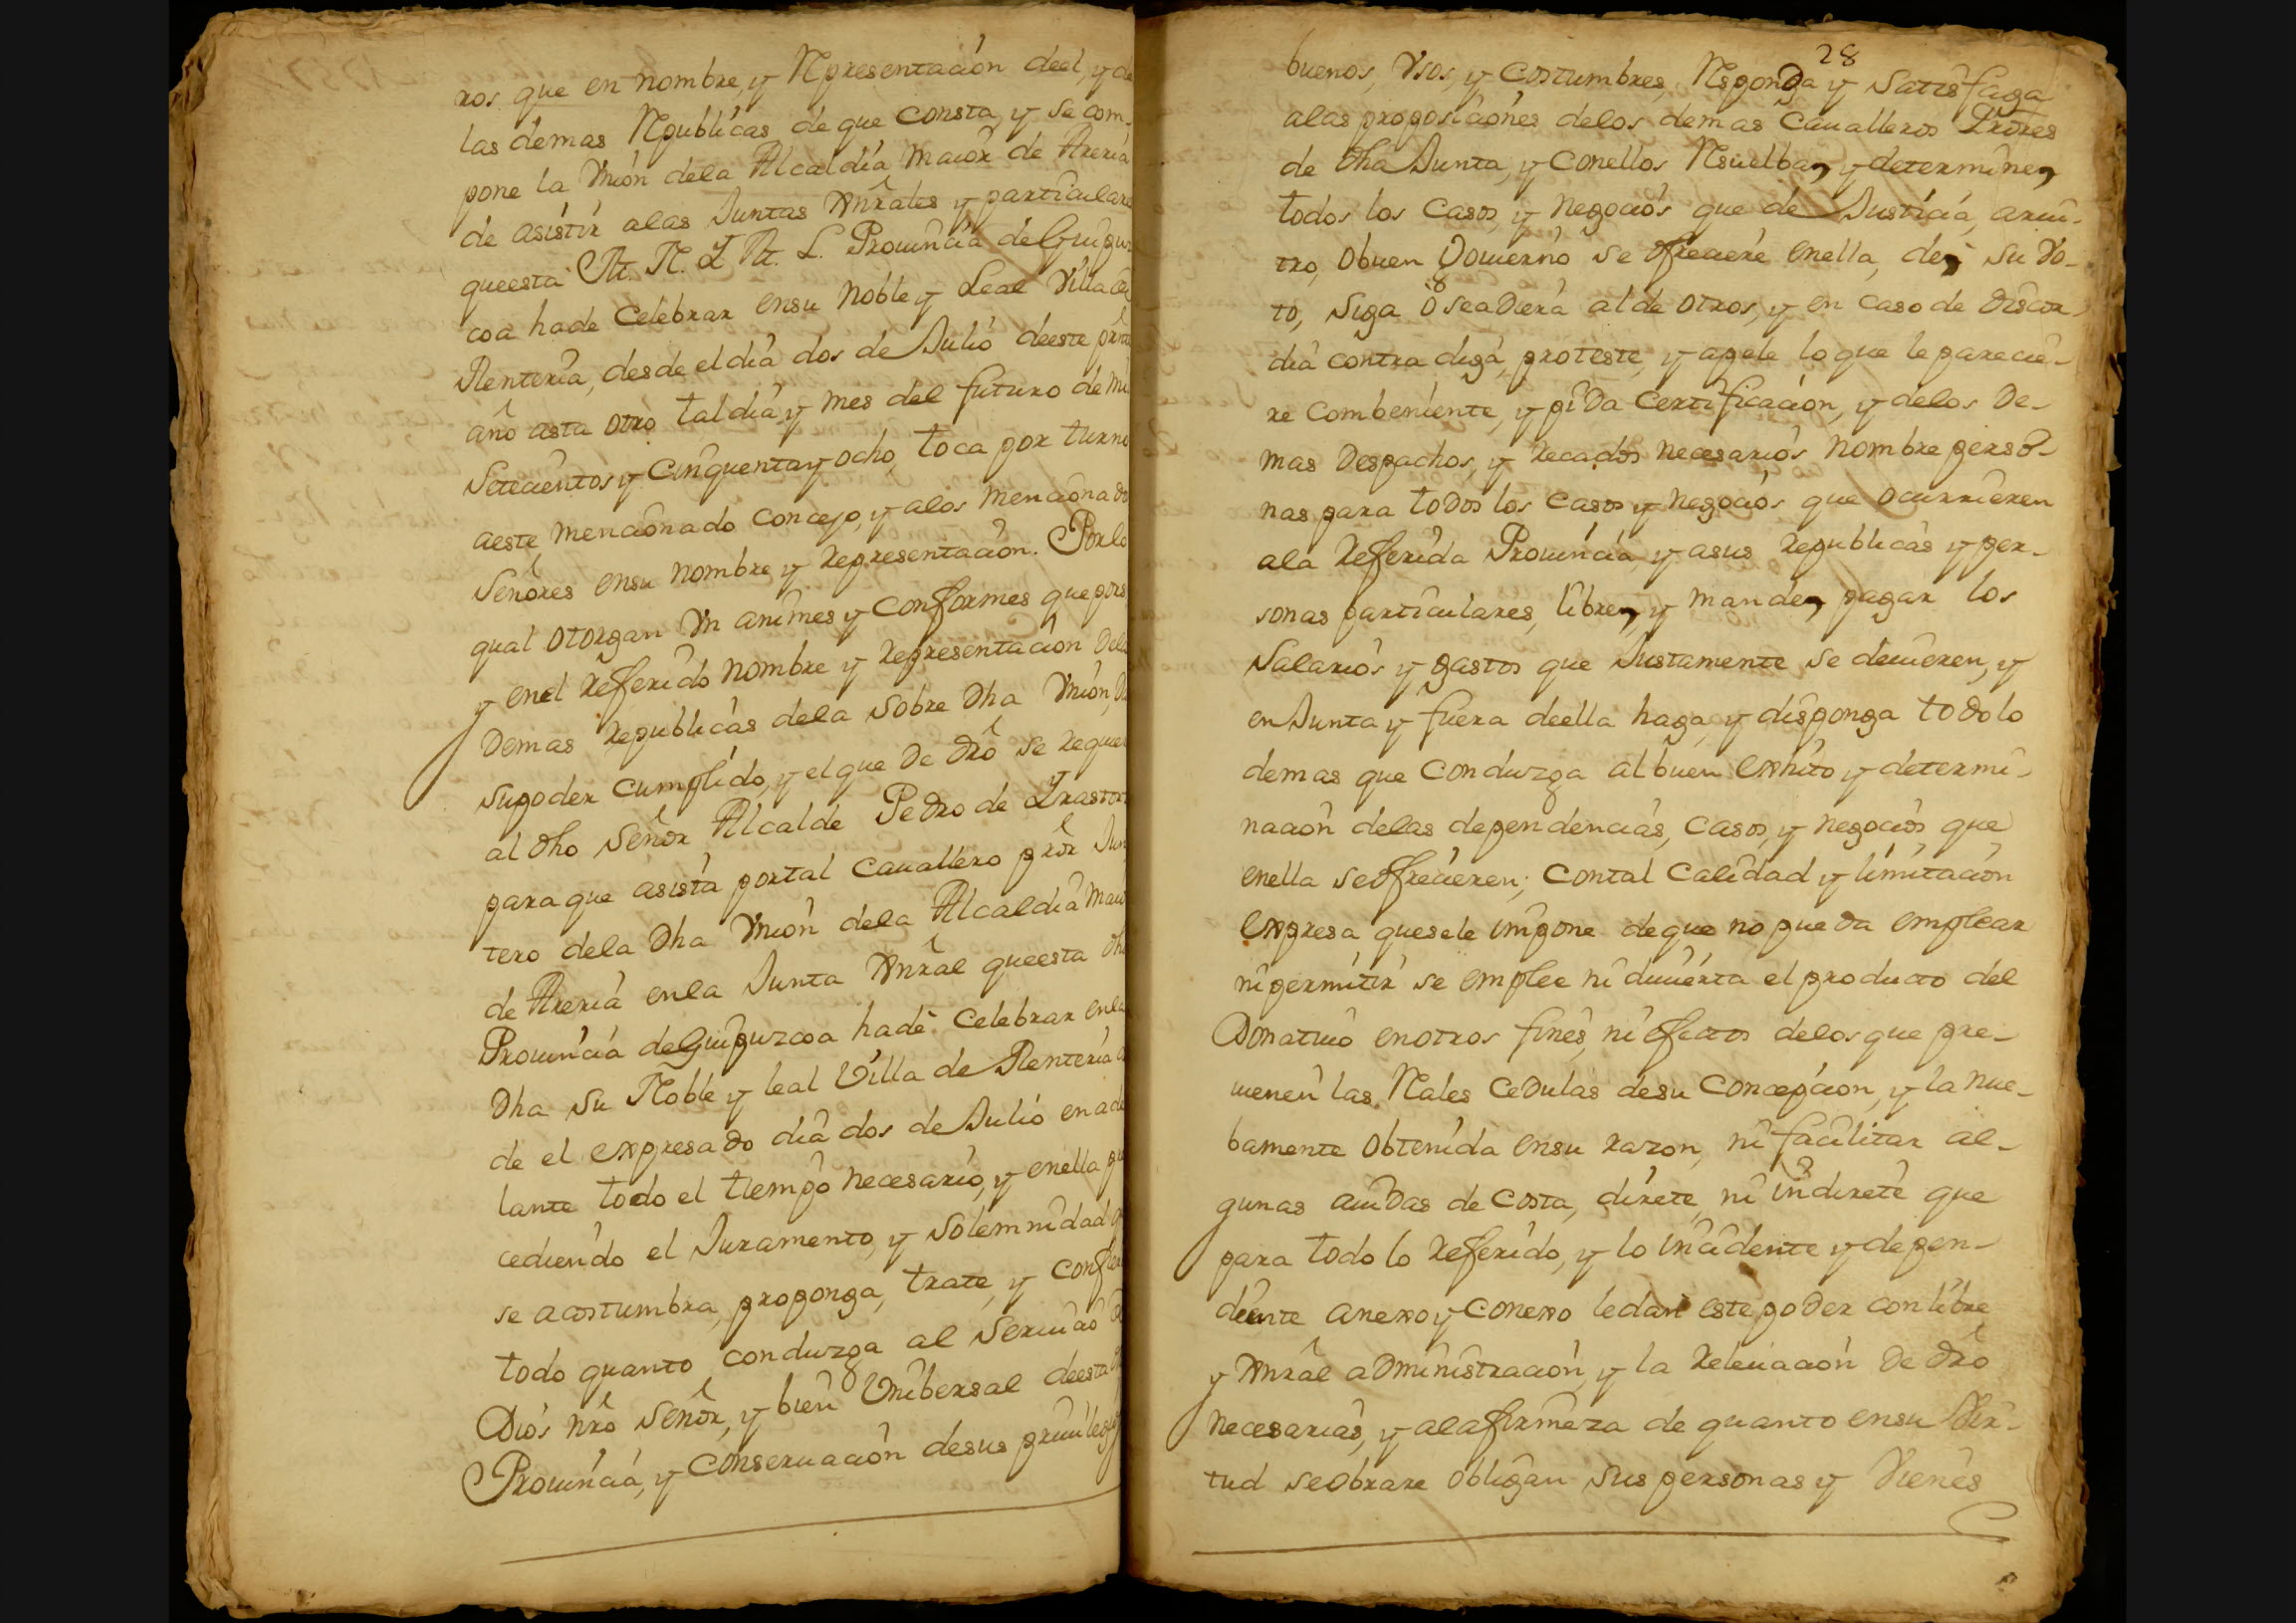 ros que en nombre, y Representacion deel, y de
las demas Republicas de que consta, y se com-
pone la Vnion dela Alcaldia maior de Areria
de asistir alas Juntas Gnrales y particulare
queesta M. N. Y M. L. Prouincia de Guipuz
coa hade Celebrar ensu Noble y Leal Villa de
Renteria, desde el dia dos de Julio deeste prnte
año asta otro tal dia y mes del futuro de mil
Setecientos y Cinquenta y ocho, toca por turno
aeste mencionado Concejo, y alos mencionado
Señores ensu nombre y representacion. Por lo
qual otorgan Vn animes y Conformes que por s
y enel Referido nombre y representacion dela
Demas republicas dela Sobre Dha Vnion, D
supoder cumplido, y el que De Dro se requer
al dho Señor Alcalde Pedro de Yrastor
para que asista por tal Cauallero pror Jun
tero dela Dha Vnion dela Alcaldia maio
de Areria enla Junta Gnral queesta dh
Prouincia de Guipuzcoa hade Celebrar enla
Dha Su Noble y leal Villa de Renteria
de el expresado dia dos de Julio en ade
lante todo el tiempo necesario, y enella p
cediendo el Juramento, y Solemnidad
se acostumbra, proponga, trate, y Confier
todo quanto conduzga al Seruicio
Dios nro Señor, y bien Vnibersal deesta
Prouincia, y Conseruacion desus priuileg
28
buenos, Vsos, y Costumbres, Responda y Satisfaga
alas proposiciones delos demas Caualleros Prores
de dha Junta, y Conellos Resuelba, y determine,
todos los Casos, y negocios que de Justicia, arui-
tro, Obuen Gouierno se ofreciere enella, de, su Vo-
to, Siga ò seaDiera al de otros, y en Caso de discor-
dia contra diga, proteste, y apele lo que le parecie-
re Combeniente, y piDa Certificacion, y delos De-
mas Despachos, y recados necesarios nombre perso-
nas para toDos los Casos y negocios que ocurrieren
ala Referida Prouincia, y asus Republicas y per-
sonas particulares, libre, y mande, pagar los
Salarios y gastos que Justamente se deuieren, y
en Junta y fuera deella haga, y disponga toDolo
demas que Conduzga al buen exhito y determi-
nacion delas dependencias, Casos, y negocios que
enella seofrecieren; Contal Calidad y limitacion
expresa quesele impone de que no pueda emplear
ni permitir se emplee ni diuierta el producto del
Donatiuo enotros fines, ni efectos delos que pre-
uienen las Rales CeDulas desu Concepcion, y la nue-
bamente obtenida ensu razon, ni facilitar al-
gunas aiuDas de Costa, direte, ni indirete que
para todo lo referido, y lo incidente y depen-
diente anexo y Conexo ledan este poder con libre
y Gnral aDministracion, y la Releuacion De Dro
necesarias, y alafirmeza de quanto ensu Vir-
tud seobrare obligan Sus personas y Vienes